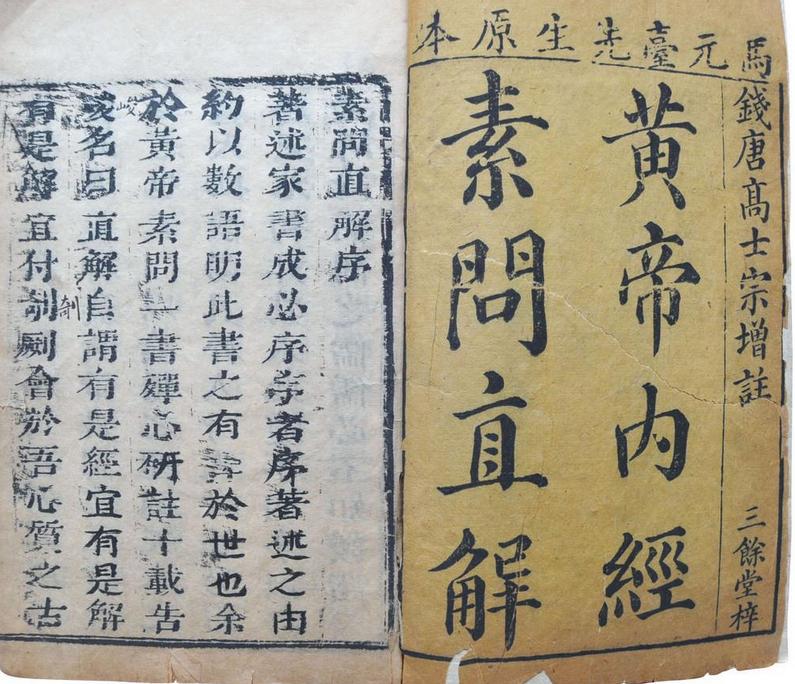 馬元臺先生原本
錢唐髙士宗增註
三餘堂梓
黃帝內經
素問直解
素問直解序
著述家書成必序序者序著述之由
約以數語明此書之有於世也余
於黃帝素問一書殫心研註十載告
峻
名曰直解自謂有是經宜有是解
剞
有是解宜付劂會於吾心質之古